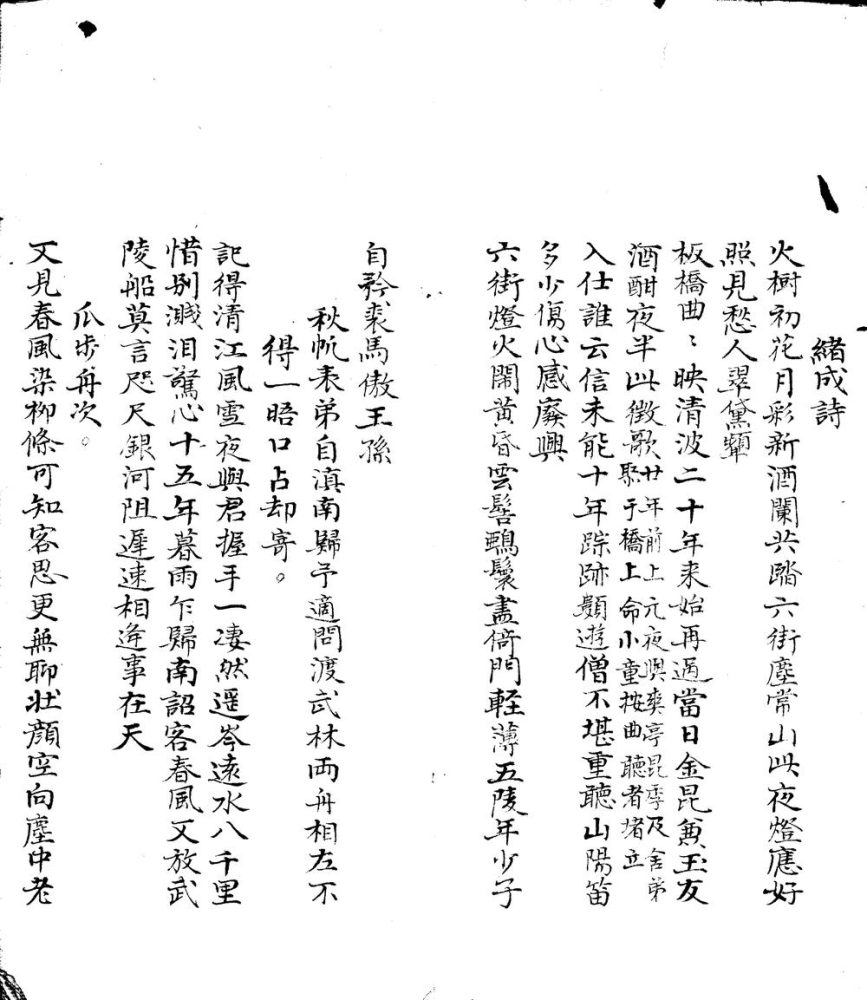 緒成詩
火樹初花月彩新酒闌共踏六街塵常山此夜燈應好
照見愁人翠黛顰
板橋曲〻映清波二十年来始再過當日金昆兼玉友
酒酣夜半此徴歌廿年前上元夜與奕亭昆季及舍弟聚于橋上命小童按曲聽者堵立
入仕誰云信未能十年踪跡類遊僧不堪重聽山陽笛
多少傷心感廢興
六街燈火鬧黄昏雲髻鵶鬟盡倚門軽薄五陵年少子
自矜裘馬傲王孫
秋帆表弟自滇南歸予適問渡武林両舟相左不
得一晤口占却寄。
記得清江風雪夜與君握手一凄然遥岑遠水八千里
惜别濺泪驚心十五年暮雨乍歸南詔客春風又放武
陵船莫言咫尺銀河阻遲速相逢事在天
瓜步舟次。
又見春風染柳條可知客思更無聊壮顔空向塵中老